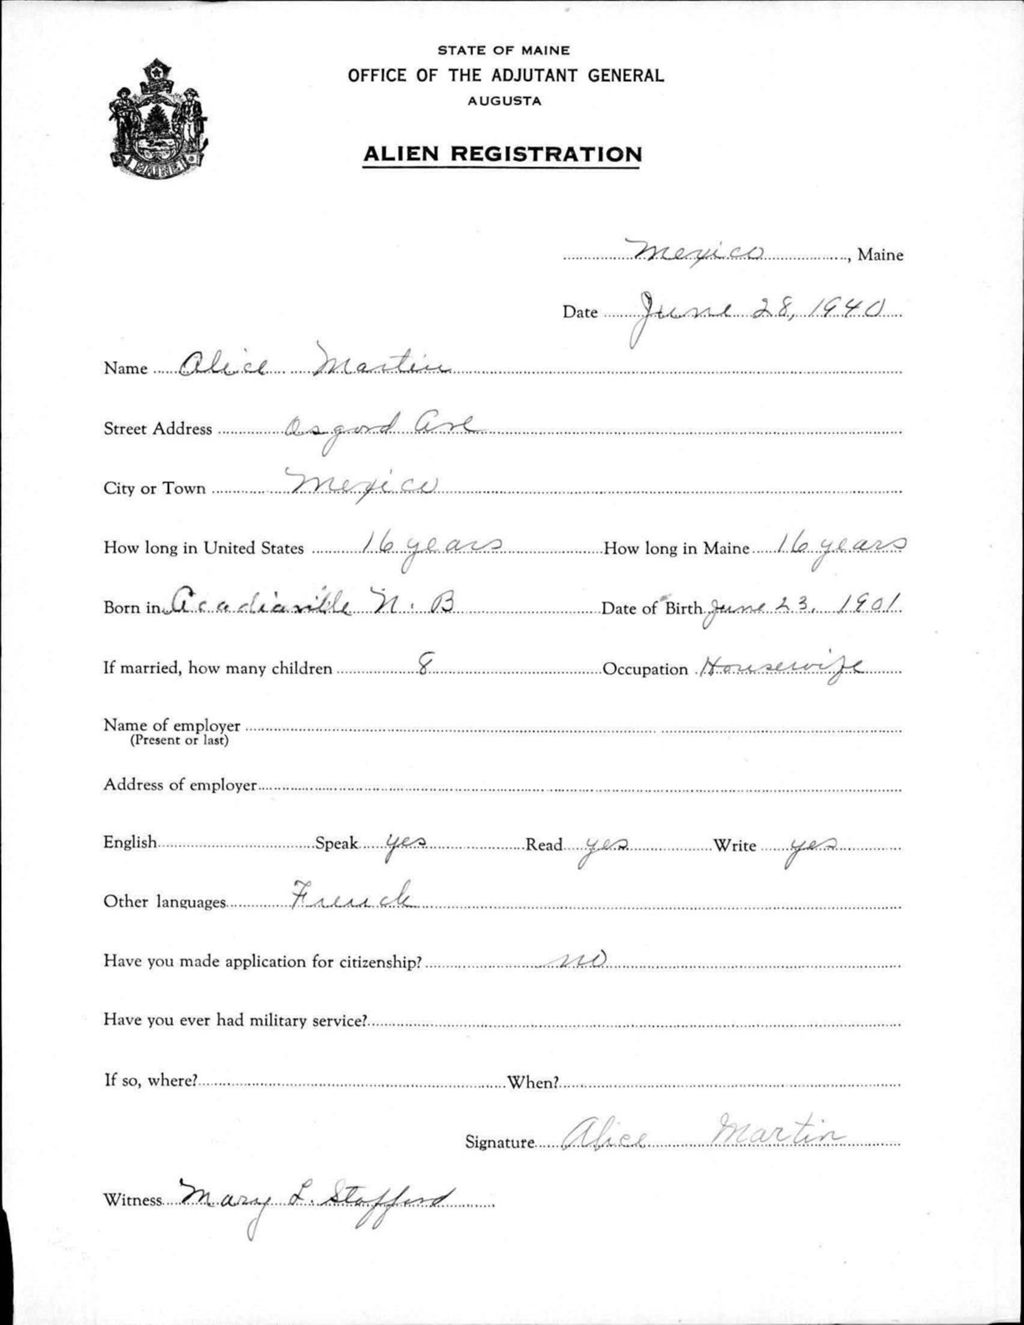 STATE OF MAINE
OFFICE OF THE ADJUTANT GENERAL
AUGUSTA
ALIEN REGISTRATION
MAINE
Mexico, Maine
Date June 28, 1940
Name Alice Martin
Street Address Osgood Ave
City or Town Mexico
How long in United States 16 years How long in Maine 16 years
Born in Acadiaville N. B Date of Birth June 23, 1901
If married, how many children 8 Occupation Housewife
Name of employer
(Present or last)
Address of employer
English Speak yes Read yes Write yes
Other languages French
Have you made application for citizenship? no
Have you ever had military service?
If so, where? When?
Signature Alice Martin
Witness Mary L. Stafford